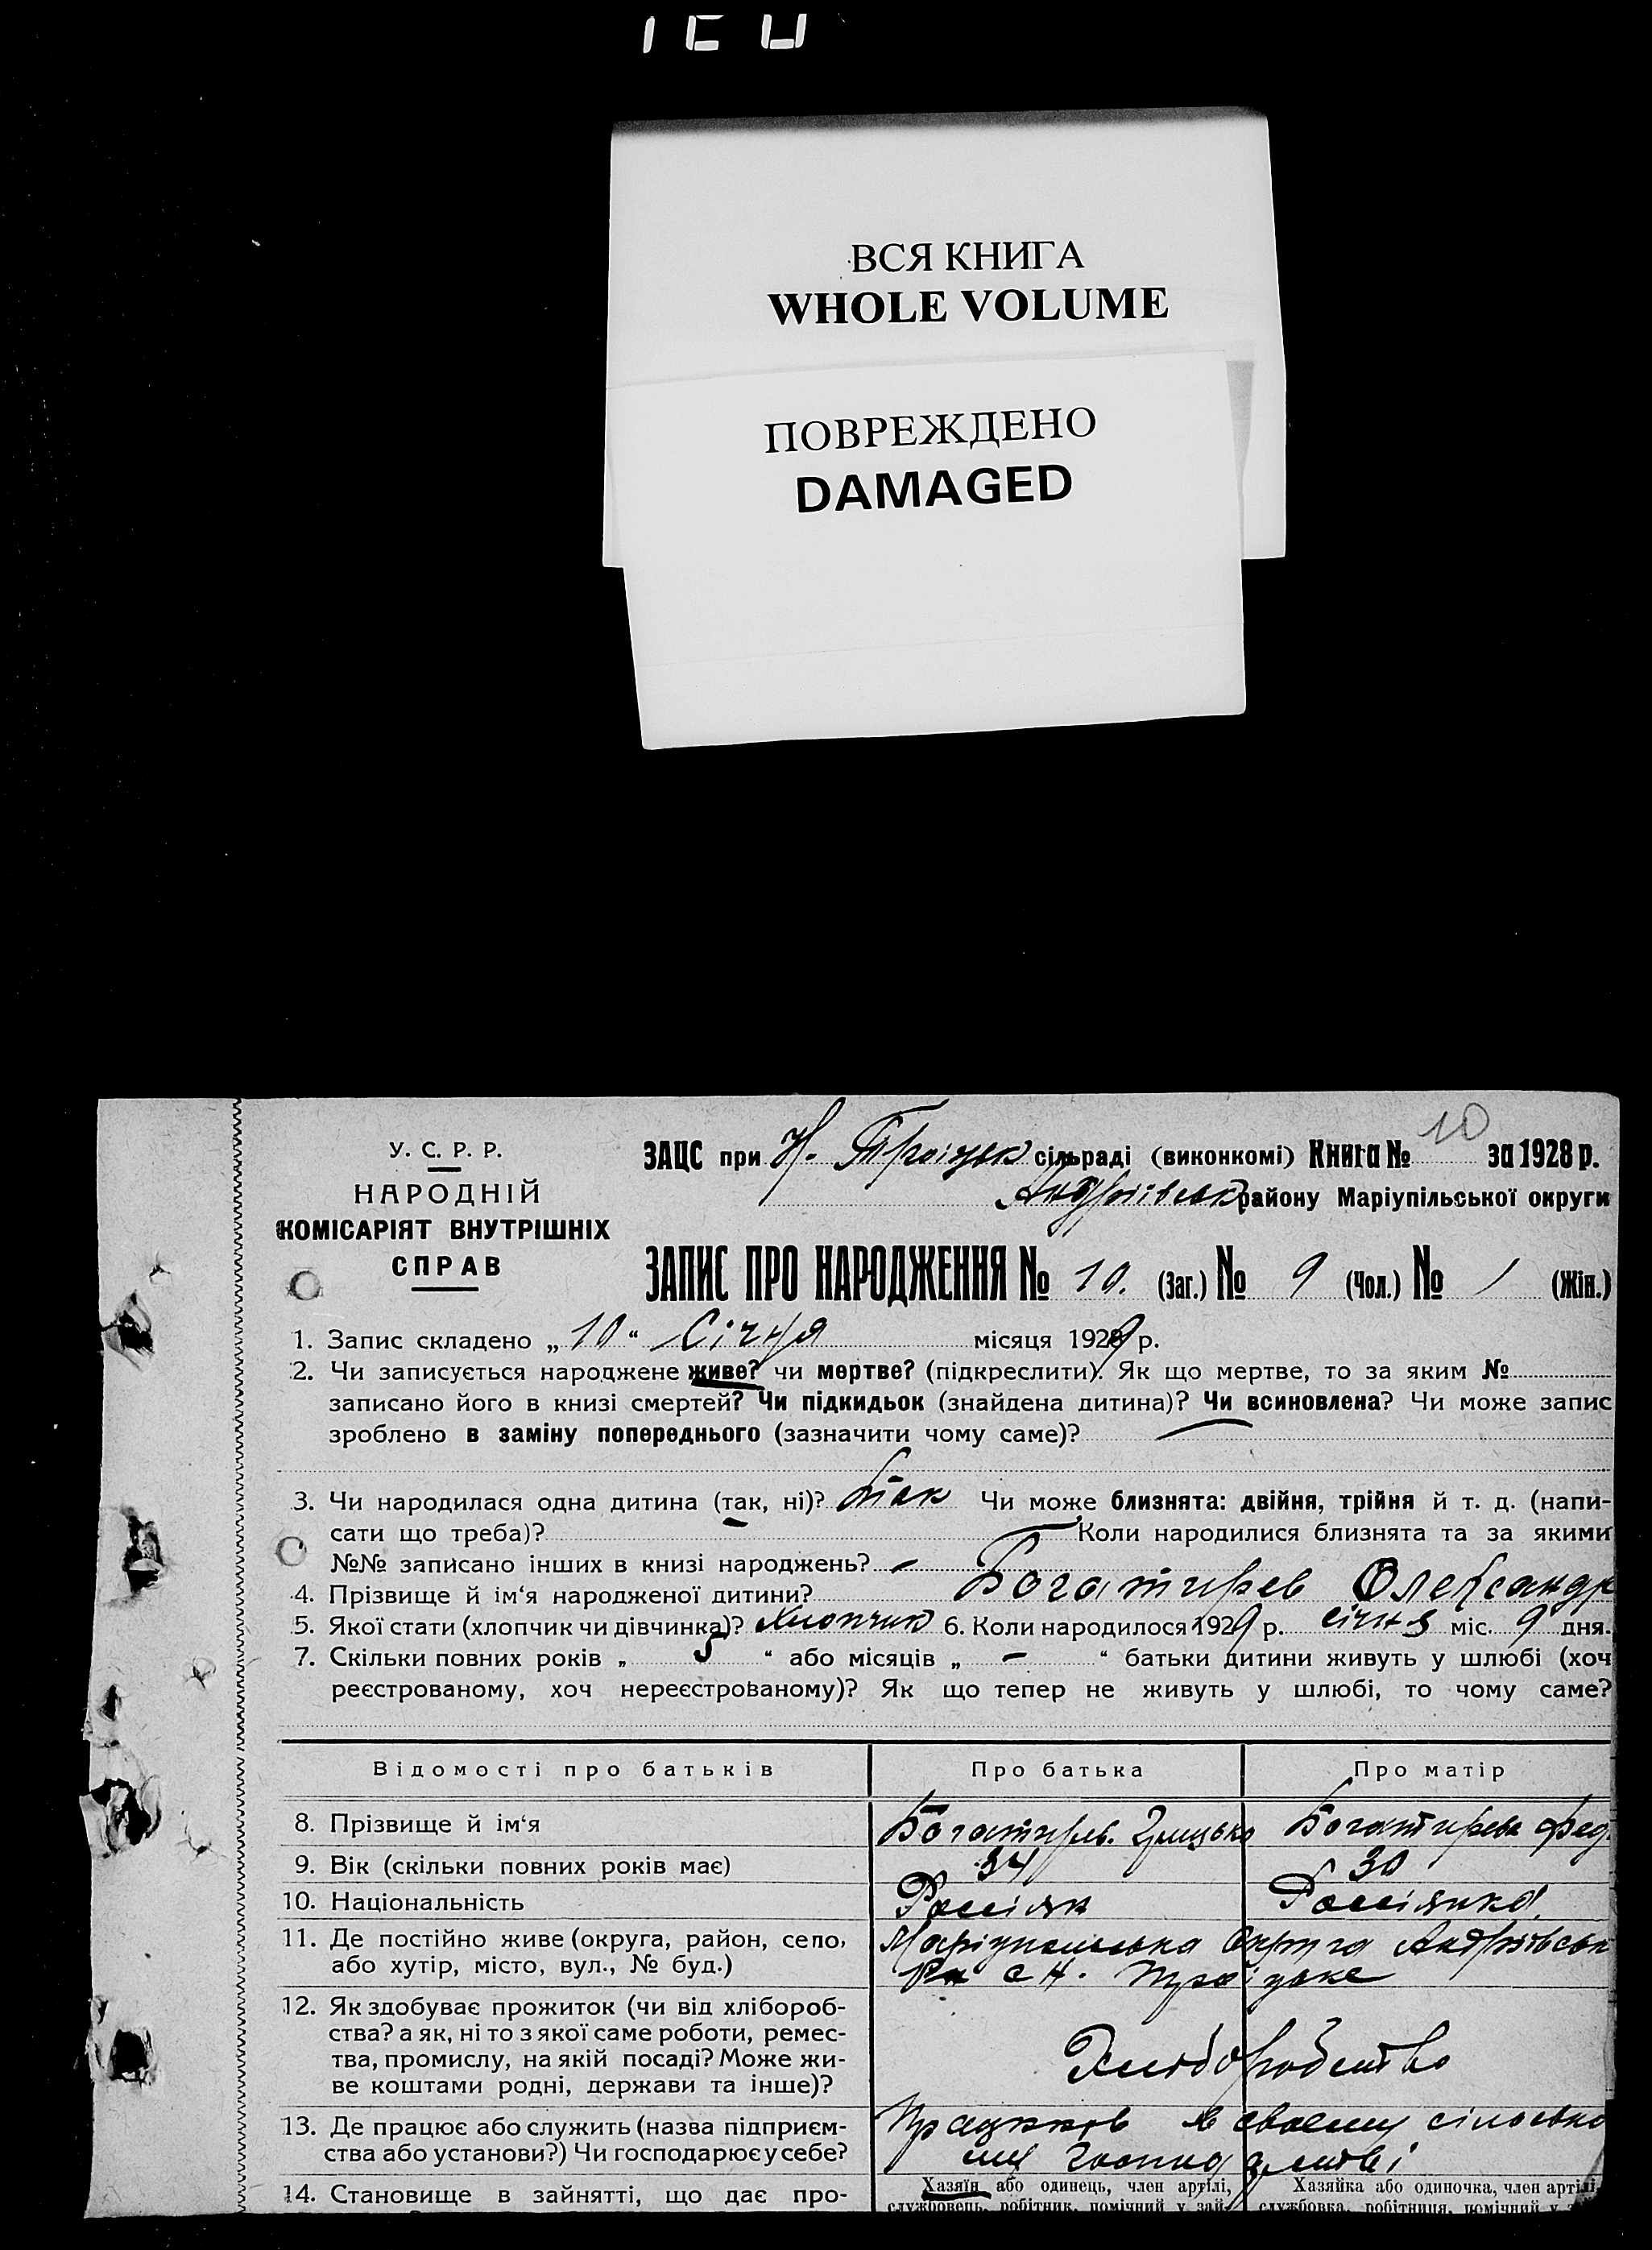 ВСЯ КНИГА
WHOLE VOLUME
ПОВРЕЖДЕНО
DAMAGED
У. С. Р. Р.
НАРОДНІЙ
КОМІСАРІЯТ ВНУТРІШНІХ
СПРАВ
10
ЗАЦС при Н. Троіцьк сільраді (виконкомі) Книга № за 1928 р.
Андріівськ району Маріупільської округи
ЗАПИС ПРО НАРОДЖЕННЯ № 10. (Заг.) № 9 (Чол.) № 1 (Жін.)
1. Запис складено „ 10 “ Січня місяця 1929 р.
2. Чи записується народжене живе? чи мертве? (підкреслити). Як що мертве, то за яким №
записано його в книзі смертей? Чи підкидьок (знайдена дитина)? Чи всиновлена? Чи може запис
зроблено в заміну попереднього (зазначити чому саме)?
3. Чи народилася одна дитина (так, ні)? так Чи може близнята: двійня, трійня й т. д. (напи-
сати що треба)? Коли народилися близнята та за якими
№№ записано інших в книзі народжень? -
4. Прізвище й ім‘я народженої дитини? Богатирев Олександр
5. Якої стати (хлопчик чи дівчинка)? Хлопчик 6. Коли народилося 1929 р. січня міс. 9 дня.
7. Скільки повних років „ 5 “ або місяців „ - “ батьки дитини живуть у шлюбі (хоч
реєстрованому, хоч нереєстрованому)? Як що тепер не живуть у шлюбі, то чому саме?
Відомості про батьків Про батька Про матір
8. Прізвище й ім‘я Богатирьв. Грицько Богатирева Фед
9. Вік (скільки повних років має) 34 30
10. Національність Россіян Россіянка
11. Де постійно живе (округа, район, село, Маріупольська Округа Андріівськ
або хутір, місто, вул., № буд.) Рн с Н. Троіцьке
12. Як здобуває прожиток (чи від хлібороб-
ства? а як, ні то з якої саме роботи, ремес-
тва, промислу, на якій посаді? Може жи-
ве коштами родні, держави та інше)?
Хліборобство
13. Де працює або служить (назва підприєм- в своему сільсько
ства або установи?) Чи господарює у себе? му господарстві
14. Становище в зайнятті, що дає про-
Хазяїн або одинець, член артілі, Хазяйка або одиночка, член артілі,
службовець, робітник, помічний у зай- службовка, робітниця, помічний у